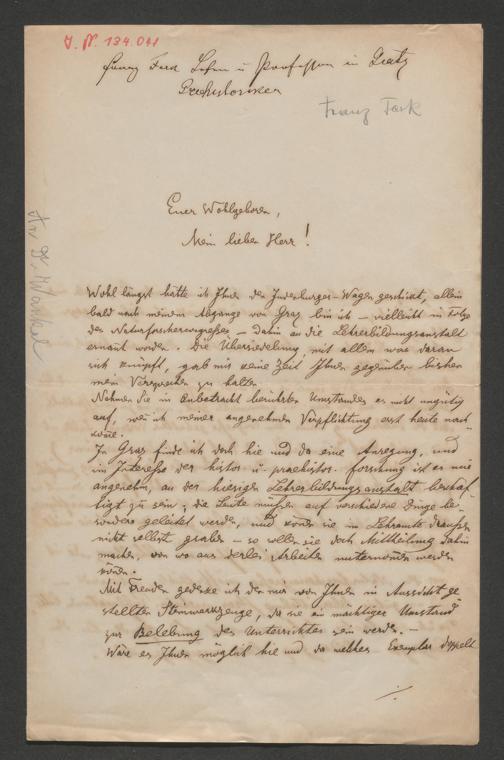 J. N. 134.041
Franz Ferk Lehrer u Professor in Gratz
Praehistoriker
Franz Ferk
An Dr. Wankel
Euer Wohlgeboren,
Mein lieber Herr!
Wohl längst hätte ich Ihnen den Judenburger-Wagen geschickt, allein
bald nach meinem Abgange von Graz bin ich – vielleicht in Folge
des Naturforschercongreßes – dahin an die Lehrerbildungsanstalt
ernannt worden. Die Übersiedelung, mit allem was daran
sich knüpft, gab mir keine Zeit Ihnen gegenüber bisher
mein Versprechen zu halten.
Nehmen Sie in Anbetracht berührter Umstandes es nicht ungütig
auf, wenn ich meiner angenehmen Verpflichtung erst heute nach-
kome.
In Graz finde ich doch hie und da eine Anregung, und
im Interesse der histor. u. praehistor. Forschung ist es mir
angenehm, an der hiesigen Lehrerbildungsanstalt beschäf-
tigt zu sein; die Leute müßen auf verschiedene Dinge be-
sonders geleitet werden, und könen sie im Lehramte draußen
nicht selbst graben – so sollen sie doch Mittheilung dahin
machen, von wo aus derlei Arbeiten unternomen werden
könen.
Mit Freuden gedenke ich der mir von Ihnen in Aussicht ge-
stellten Steinwerkzeuge, da sie ein mächtiger Umstand
zur Belebung des Unterrichtes sein werden. –
Wäre es Ihnen möglich hie und da welches Exemplar doppelt
./.